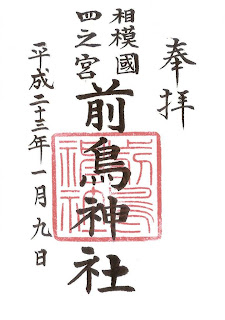 奉拝
相模國
四之宮
前鳥神社
平成二十三年一月九日
前鳥
神社